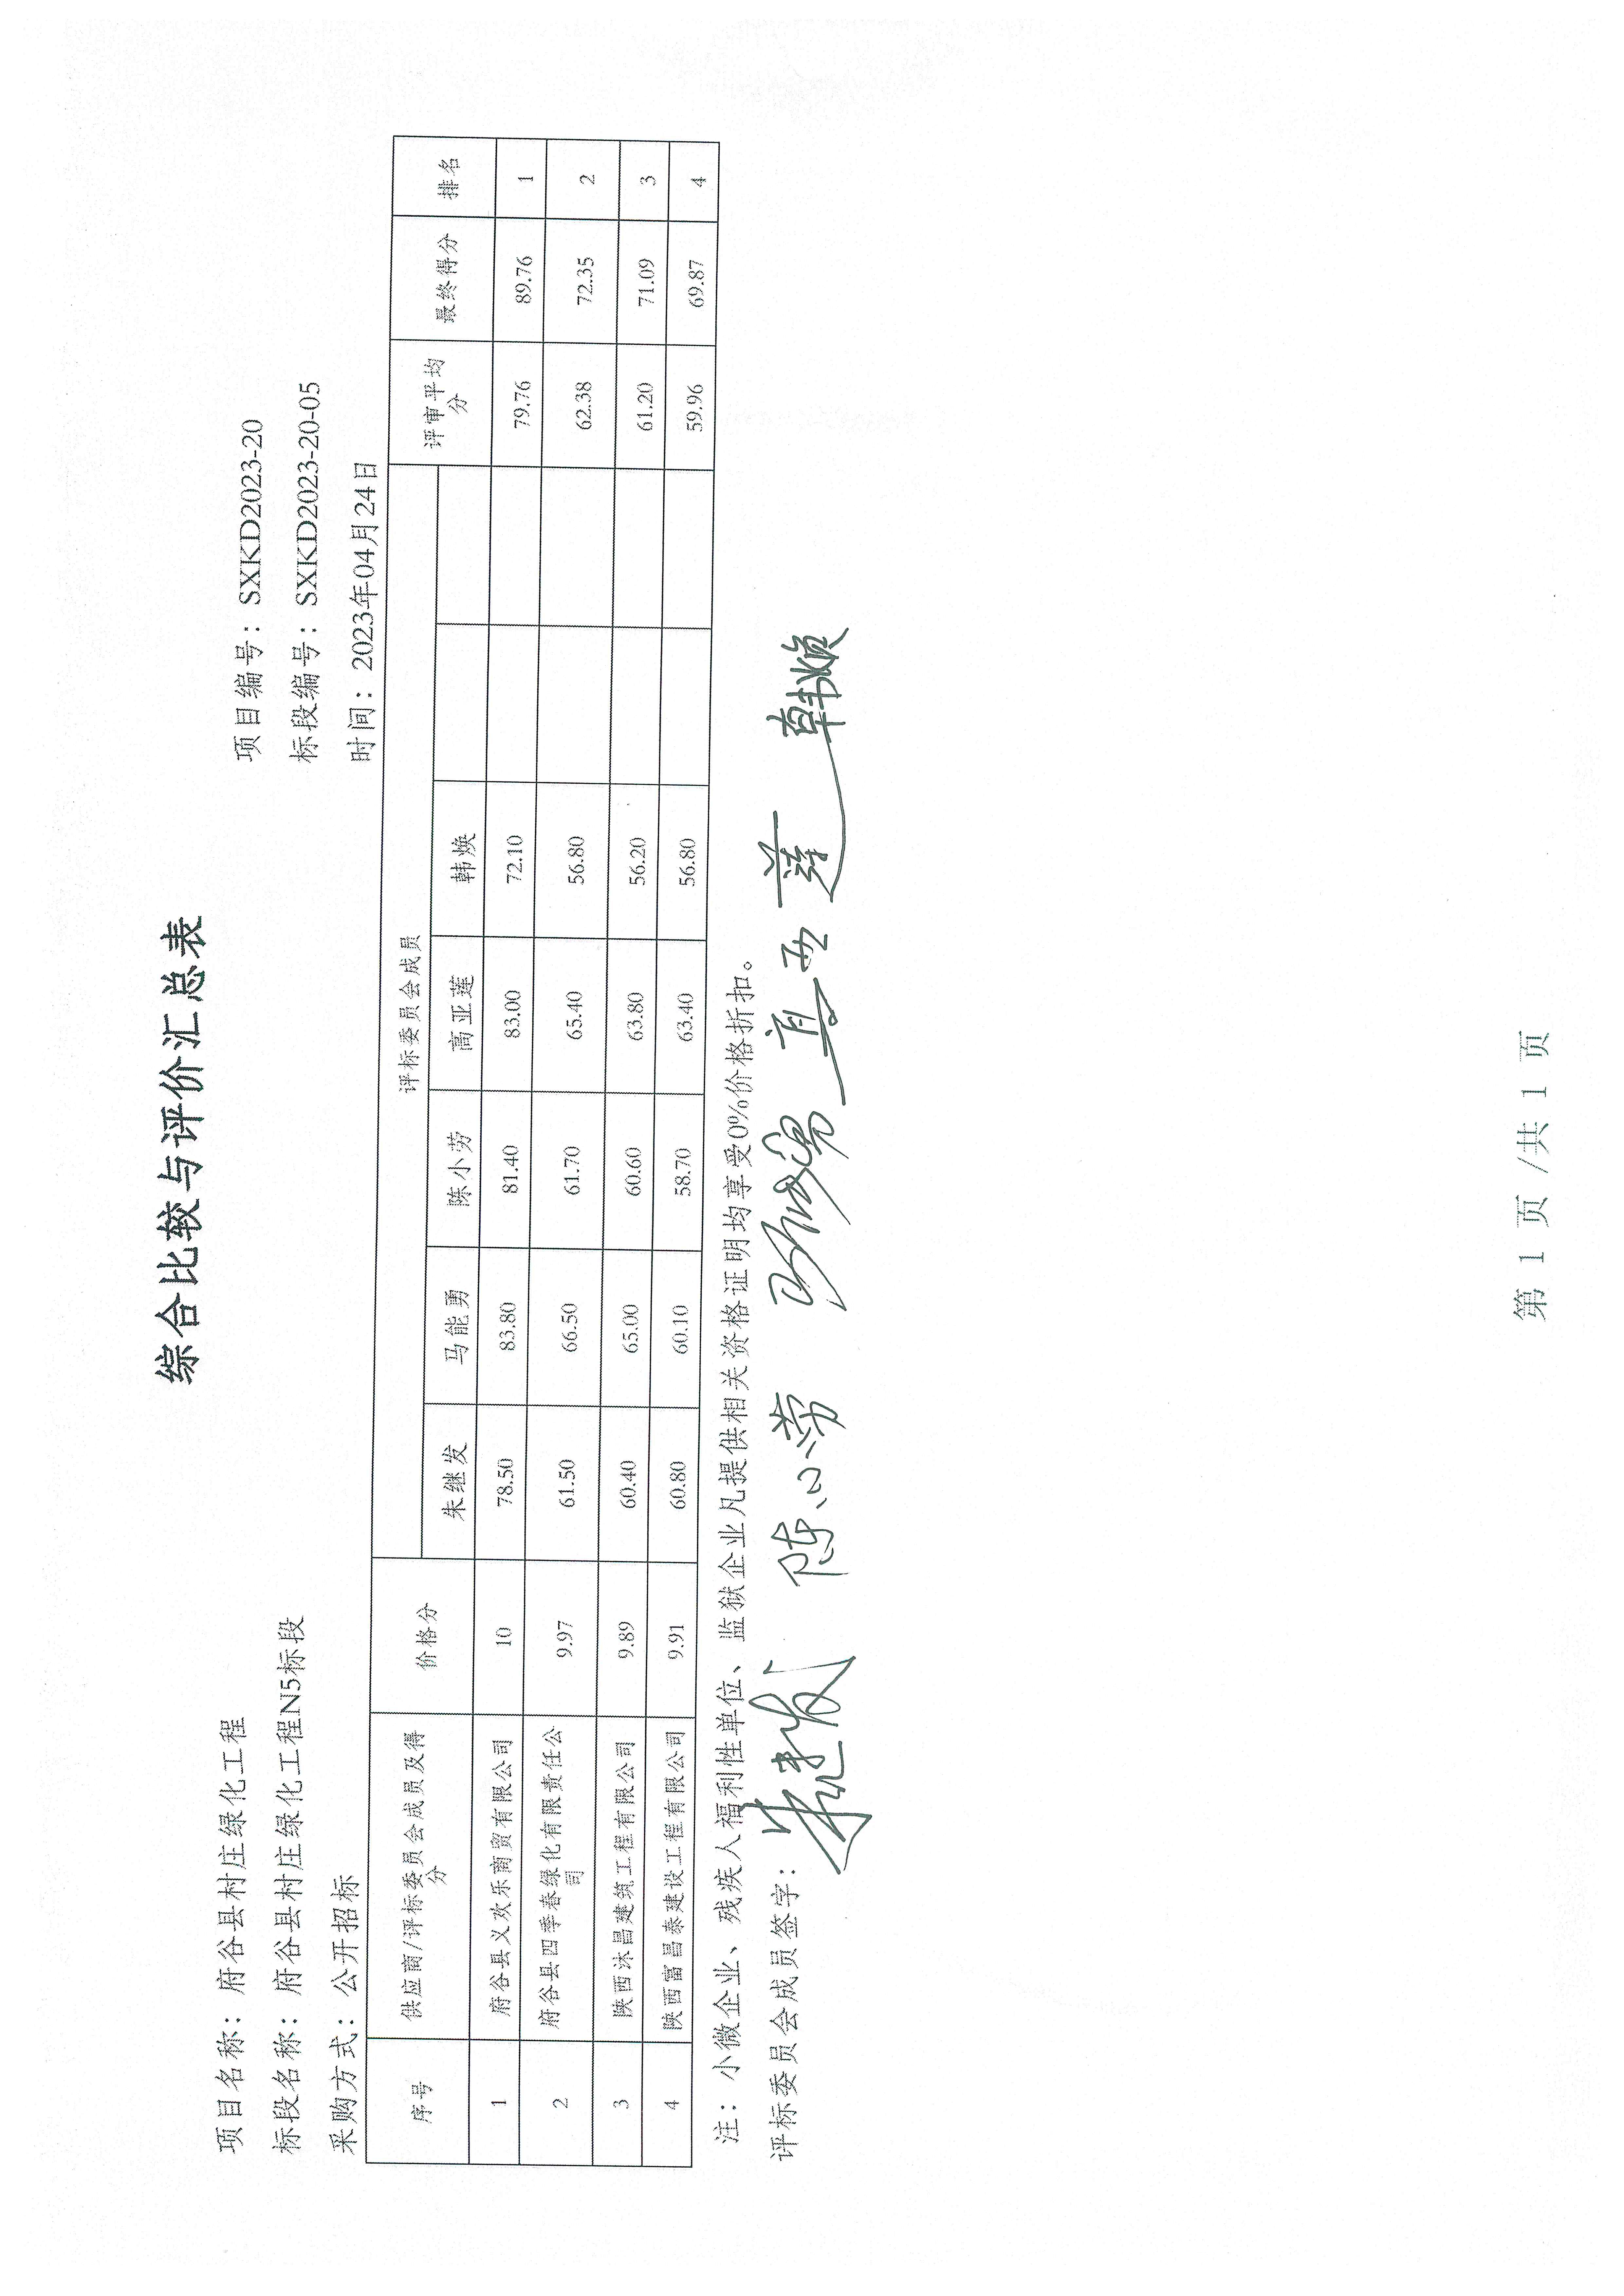 综合比较与评价汇总表
项目名称：府谷县村庄绿化工程 项目编号：SXKD2023-20
标段名称：府谷县村庄绿化工程N5标段 标段编号：SXKD2023-20-05
采购方式：公开招标 时间：2023年04月24日
序号 供应商/评标委员会成员及得分 价格分 评标委员会成员 评审平均分 最终得分 排名
朱继发 马能勇 陈小劳 高亚莲 韩焕
1 府谷县义欢乐商贸有限公司 10 78.50 83.80 81.40 83.00 72.10 79.76 89.76 1
2 府谷县四季春绿化有限责任公司 9.97 61.50 66.50 61.70 65.40 56.80 62.38 72.35 2
3 陕西沐昌建筑工程有限公司 9.89 60.40 65.00 60.60 63.80 56.20 61.20 71.09 3
4 陕西富昌泰建设工程有限公司 9.91 60.80 60.10 58.70 63.40 56.80 59.96 69.87 4
注：小微企业、残疾人福利性单位、监狱企业凡提供相关资格证明均享受0%价格折扣。
评标委员会成员签字：朱继发 陈小劳 马能勇 高亚莲 韩焕
第 1 页 /共 1 页